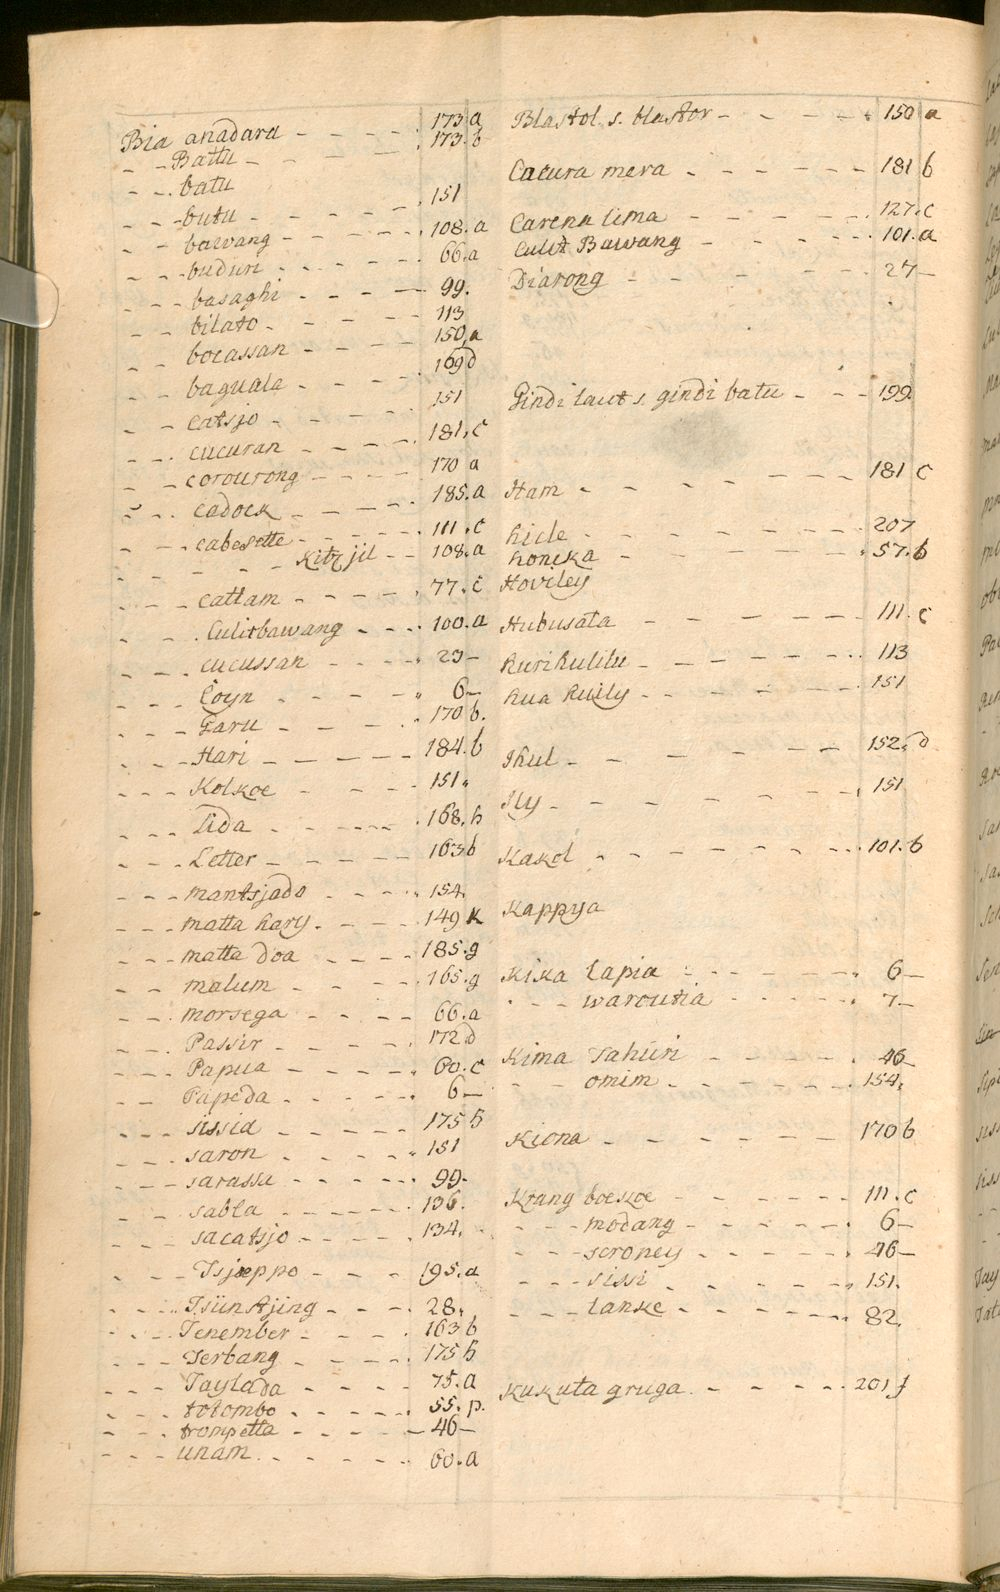 Bia anadara - - - - - 173 a
- - Battu - - - - - 173. b
- - batu
- - butu - - - - - 151
- - bawang - - - - 108. a
- - buduri - - - - 66. a
- - basaghi - - - - 99.
- - bilato - - - - 113
- - bocassan - - - - 150. a
- - baguala - - - - 169 d
- - catsjo - - - - 151
- - cucuran - - - - 181. c
- - corourong - - - - 170 a
- - cadock - - - - 185. a
- - cabesette - - - - 111. c
- - - - Kitzjil - - 108. a
- - - cattam - - - - 77. c
- - - Culitbawang - - - 100. a
- - - cucussan - - - - 23 -
- - - Coyn - - - - 6 -
- - - Garu - - - - 170 b.
- - - Hari - - - - 184. b
- - - Kolkoe - - - - 151.
- - - Lida - - - - 168. h
- - - Letter - - - - 163 b
- - - mantsjado - - - - 154.
- - - matta hary - - - - 149 K
- - - matta doa - - - - 185. g
- - - malum - - - - 165. g
- - - morsega - - - - 66. a
- - - Passir - - - - 172 d
- - - Papua - - - - 60. c
- - - Papeda - - - - 6 -
- - - sissia - - - - 175 h
- - - saron - - - - 151
- - - sarassa - - - - 99.
- - - sabla - - - - 136.
- - - sacatsjo - - - - 134.
- - - Tsjæppo - - - - 195. a
- - - Tsiintjing - - - 28.
- - - Tenember - - - - 163 b
- - - Terbang - - - - 175 h
- - - Taylada - - - - 75. a
- - - totombo - - - - 55. p.
- - - trompetta - - - - 46 -
- - - unam - - - - 60. a
Blastol s. blastor - - - - 150 a
Cacura mera - - - - - 181 b
Carena lima - - - - - 127. c
Culit Bawang - - - - - 101. a
Diarong - - - - - 27 -
Gindi laut s. gindi batu - - - 199.
Ham - - - - - 181 c
hicle - - - - - 207
honcka - - - - - 57. b
Hoviley
Hubusata - - - - - 111. c
hurihulilu - - - - - 113
hua huily - - - - - 151
Ihul - - - - - 152. d
Ily - - - - - 151
Kakol - - - - - 101. b
Kappya
Kika lapia - - - - - 6 -
- - - waroutia - - - - 7 -
Kima Tahuri - - - - 46 -
- - omim - - - - - 154.
Kiona - - - - - 170 b
Krang boekoe - - - - 111. c
- - - modang - - - - 6 -
- - - seroney - - - - 46 -
- - - sissi - - - - 151.
- - - lanke - - - - 82.
Kukuta gruga - - - - 201 f